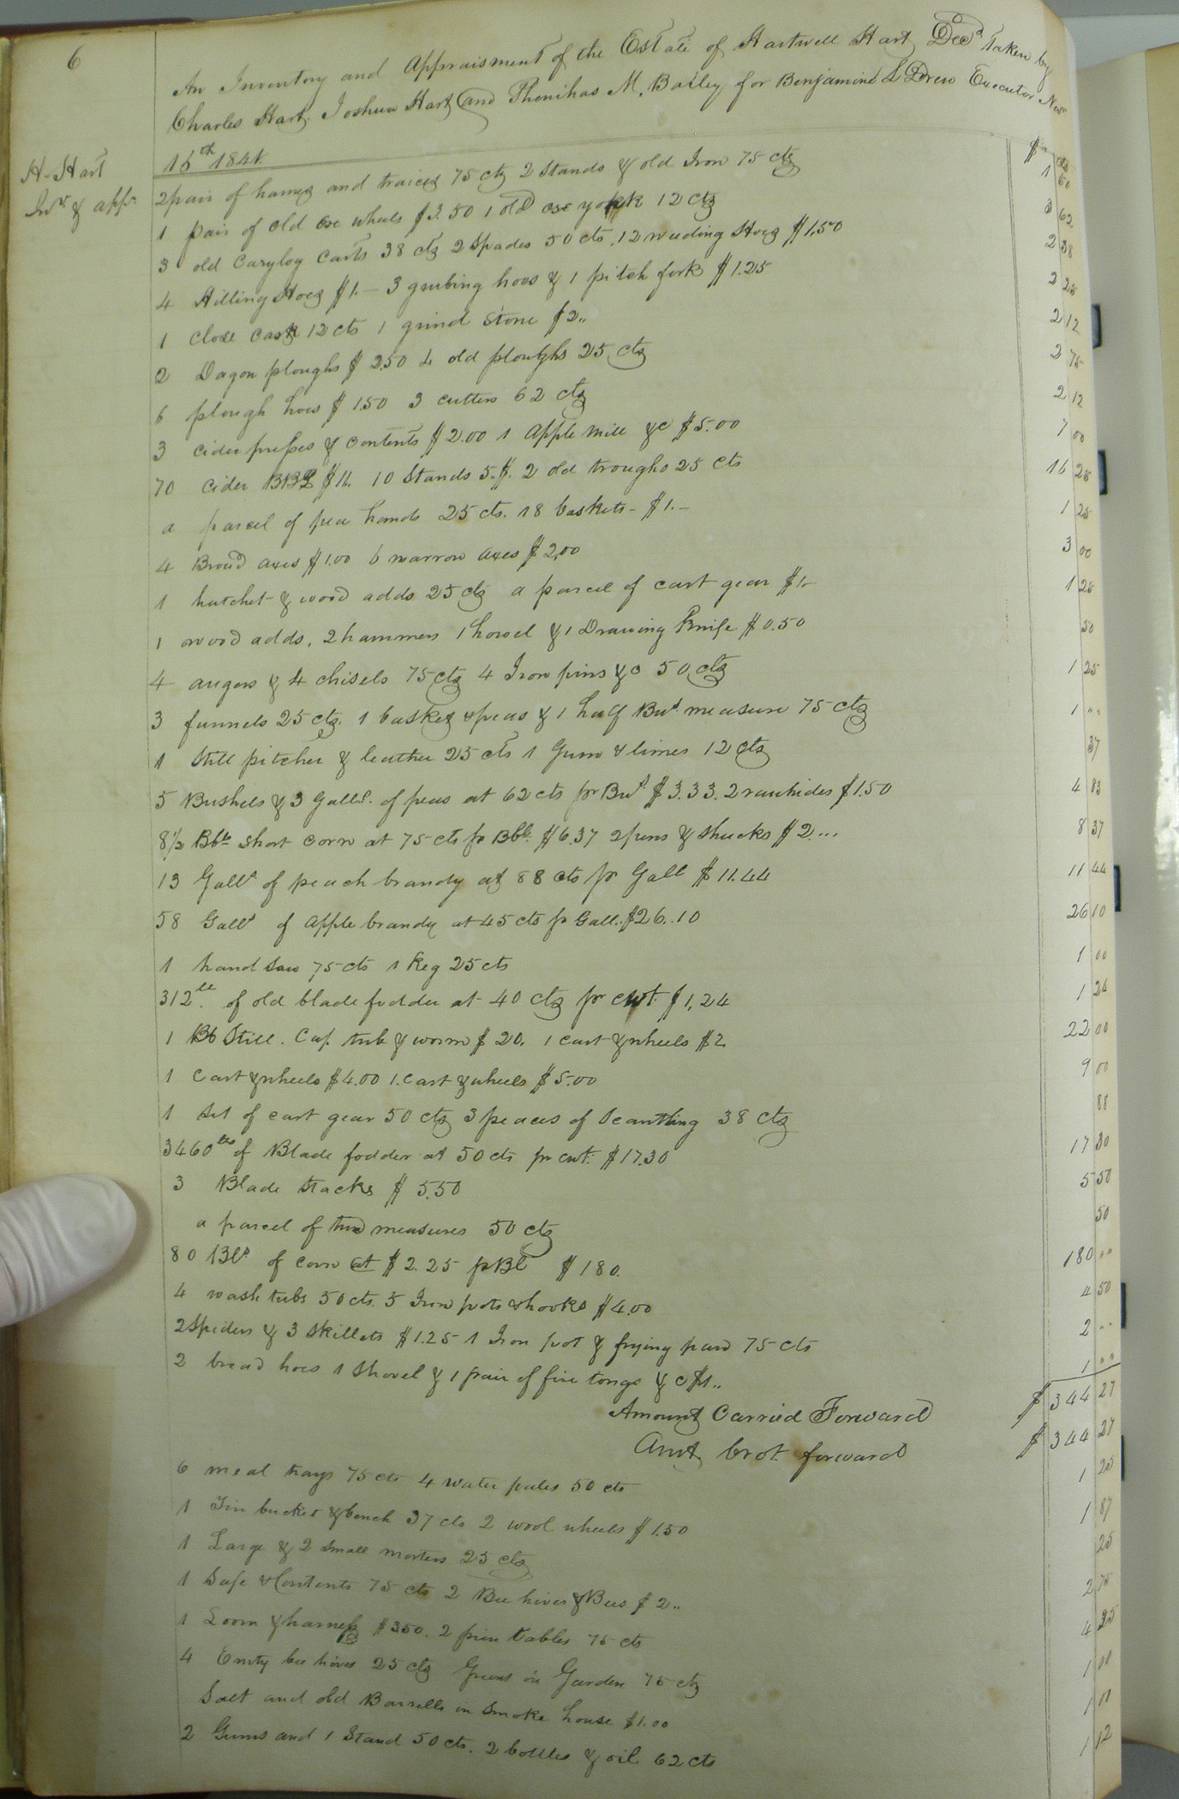 6
An Inventory and Appraisment of the Estate of Hartwell Hart Decd Taken by
Charles Hart, Joshua Hart and Phenihas M. Bailey for Benjamine L Drew Executor Novr
16th 1841
H-Hart
Invt & appt
2 pair of hames and traices 75 cts 2 Stands & old Iron 75 cts 1 50
1 pair of old oxe wheels $3.50 1 old oxe yoke 12 cts 3 62
3 old Carylog Carts 38 cts 2 Spades 50 cts, 12 weeding Hoes $1.50 2 38
4 Hilling Hoes $1.- 3 grubing hoes & 1 pitch fork $1.25 2 25
1 close cask 12 cts 1 grind stone $2.. 2 12
2 Dagon ploughs $2.50 4 old ploughs 25 cts 2 75
6 plough hoes $1.50 3 cutters 62 cts 2 12
3 cider presses & contents $2.00 1 Apple mill &c $5.00 7 00
70 cider BBls $11. 10 Stands 5.$. 2 old troughs 25 cts 16 25
a parcel of pea hands 25 cts. 18 baskets - $1.- 1 25
4 Broad axes $1.00 6 narrow axes $2.00 3 00
1 hatchet & wood adds 25 cts a parcel of cart gear $1- 1 25
1 wood adds, 2 hammers 1 howel & 1 Drawing Knife $0.50 50
4 augers & 4 chisels 75 cts 4 Iron pins &c 50 cts 1 25
3 funnels 25 cts. 1 basket & peas & 1 half Bus measure 75 cts 1 ..
1 Still pitcher & leather 25 cts 1 Gum & limes 12 cts 37
5 Bushels & 3 Galls. of peas at 62 cts pr Bus $3.33. 2 rawhides $1.50 4 83
8½ Bbls short corn at 75 cts pr Bbl. $6.37 2 pens & shucks $2... 8 37
13 Galls of peach brandy at 88 cts pr Gall $11.44 11 44
58 Galls of Apple brandy at 45 cts pr Gall. $26.10 26 10
1 hand saw 75 cts 1 keg 25 cts 1 00
312 lb. of old blade fodder at 40 cts pr cwt. $1,24 1 24
1 Still. Cap. tub & worm $20. 1 cart & wheels $2. 22 00
1 Cart & wheels $4.00 1. cart & wheels $5.00 9 00
1 Set of cart gear 50 cts 3 peaces of Scantling 38 cts 88
3460 lbs of Blade fodder at 50 cts pr cwt. $17.30 17 30
3 Blade Stacks $5.50 5 50
a parcel of measures 50 cts 50
80 Bls of corn at $2.25 p Bl $180. 180 ..
4 wash tubs 50 cts. 5 Iron pots & hooks $4.00 4 50
2 Spiders & 3 Skillets $1.25 1 Iron pot & frying pan 75 cts 2 ..
2 bread hoes 1 Shovel & 1 pair of fire tongs &c $1.. 1 ..
Amount Carried Forward $344 27
Amt brot forward $344 27
6 meal trays 75 cts 4 water pales 50 cts 1 25
1 Tin bucket & bench 37 cts 2 wool wheels $1.50 1 87
1 Large & 2 small morters 25 cts 25
1 Safe & Contents 75 cts 2 Bee hives & Bees $2.. 2 75
1 Loom & harness $3.50. 2 pine tables 75 cts 4 25
4 Emty bee hives 25 cts Greens in Garden 75 cts 1 00
Salt and old Barrells in Smoke house $1.00 1 00
2 Gums and 1 Stand 50 cts. 2 bottles & oil 62 cts 1 12